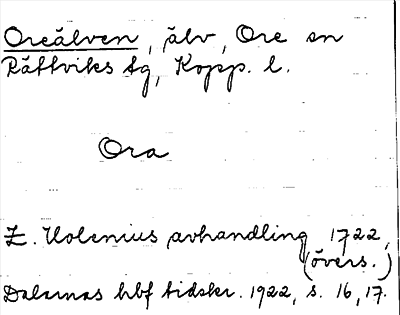 Oreälven, älv, Ore sn
Rättviks tg, Kopp. l.
Ora
Z. Holenius avhandling 1722,
(övers.)
Dalarnas hbf tidskr. 1922, s. 16, 17.